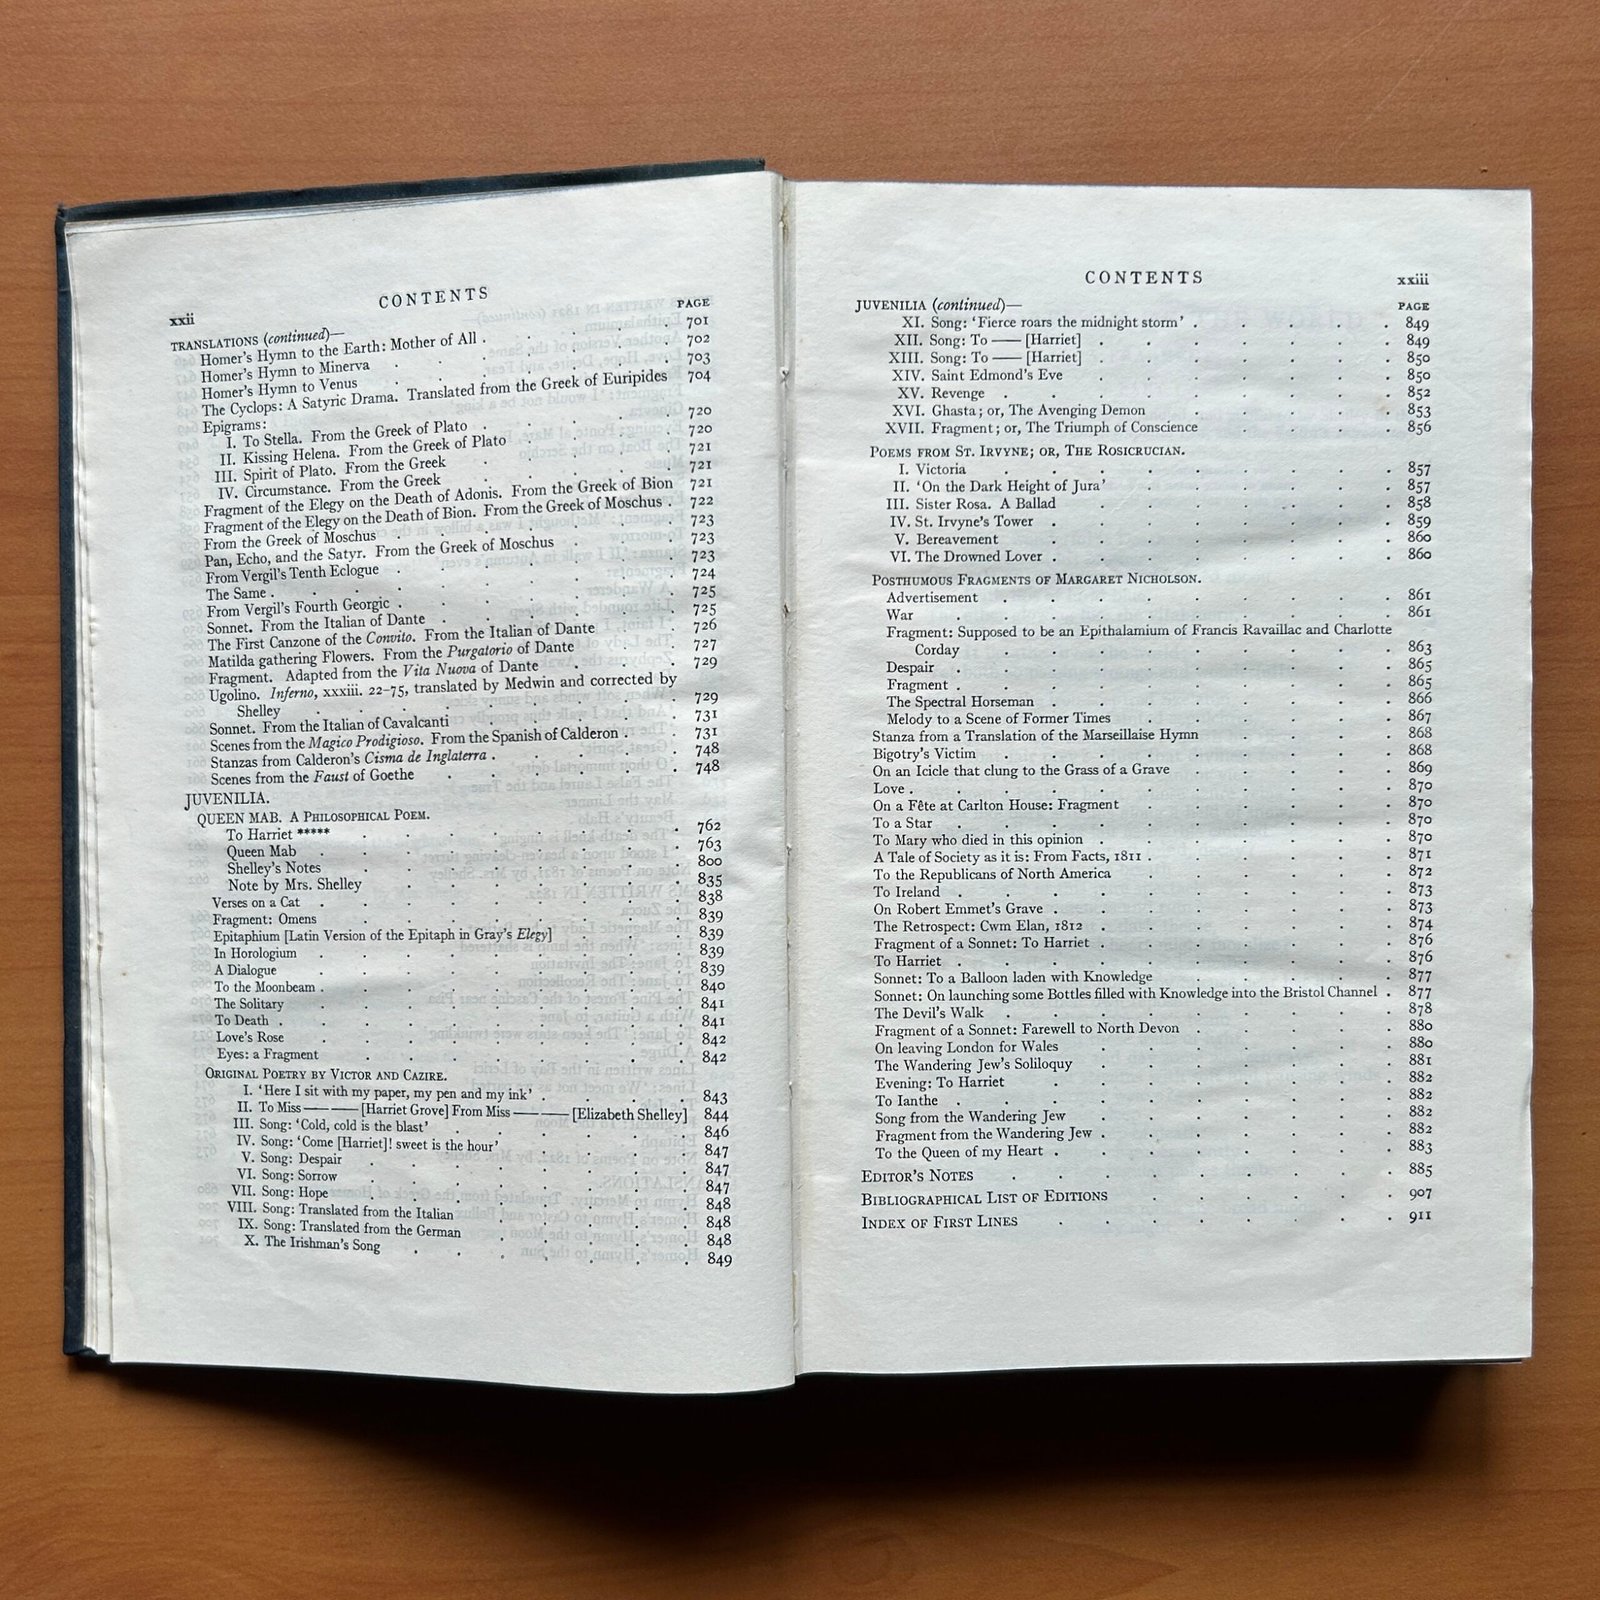 xxii CONTENTS
PAGE
TRANSLATIONS (continued)—
Homer's Hymn to the Earth: Mother of All . 701
Homer's Hymn to Minerva 702
Homer's Hymn to Venus 703
The Cyclops: A Satyric Drama. Translated from the Greek of Euripides 704
Epigrams:
I. To Stella. From the Greek of Plato 720
II. Kissing Helena. From the Greek of Plato 720
III. Spirit of Plato. From the Greek 721
IV. Circumstance. From the Greek 721
Fragment of the Elegy on the Death of Adonis. From the Greek of Bion 721
Fragment of the Elegy on the Death of Bion. From the Greek of Moschus . 722
From the Greek of Moschus 723
Pan, Echo, and the Satyr. From the Greek of Moschus 723
From Vergil's Tenth Eclogue 723
The Same . 724
From Vergil's Fourth Georgic . 725
Sonnet. From the Italian of Dante 725
The First Canzone of the Convito. From the Italian of Dante 726
Matilda gathering Flowers. From the Purgatorio of Dante 727
Fragment. Adapted from the Vita Nuova of Dante 729
Ugolino. Inferno, xxxiii. 22–75, translated by Medwin and corrected by
Shelley 729
Sonnet. From the Italian of Cavalcanti 731
Scenes from the Magico Prodigioso. From the Spanish of Calderon . 731
Stanzas from Calderon's Cisma de Inglaterra . 748
Scenes from the Faust of Goethe 748
JUVENILIA.
QUEEN MAB. A PHILOSOPHICAL POEM.
To Harriet ***** 762
Queen Mab 763
Shelley's Notes 800
Note by Mrs. Shelley 835
Verses on a Cat 838
Fragment: Omens 839
Epitaphium [Latin Version of the Epitaph in Gray's Elegy] 839
In Horologium 839
A Dialogue 839
To the Moonbeam . 840
The Solitary 841
To Death . 841
Love's Rose 842
Eyes: a Fragment 842
ORIGINAL POETRY BY VICTOR AND CAZIRE.
I. 'Here I sit with my paper, my pen and my ink' . 843
II. To Miss —— —— [Harriet Grove] From Miss —— —— [Elizabeth Shelley] 844
III. Song: 'Cold, cold is the blast' 846
IV. Song: 'Come [Harriet]! sweet is the hour' 847
V. Song: Despair 847
VI. Song: Sorrow 847
VII. Song: Hope 848
VIII. Song: Translated from the Italian 848
IX. Song: Translated from the German 848
X. The Irishman's Song 849
CONTENTS xxiii
JUVENILIA (continued)— PAGE
XI. Song: 'Fierce roars the midnight storm' . 849
XII. Song: To —— [Harriet] 849
XIII. Song: To —— [Harriet] 850
XIV. Saint Edmond's Eve 850
XV. Revenge 852
XVI. Ghasta; or, The Avenging Demon 853
XVII. Fragment; or, The Triumph of Conscience 856
POEMS FROM ST. IRVYNE; OR, THE ROSICRUCIAN.
I. Victoria 857
II. 'On the Dark Height of Jura' 857
III. Sister Rosa. A Ballad 858
IV. St. Irvyne's Tower 859
V. Bereavement 860
VI. The Drowned Lover . 860
POSTHUMOUS FRAGMENTS OF MARGARET NICHOLSON.
Advertisement 861
War 861
Fragment: Supposed to be an Epithalamium of Francis Ravaillac and Charlotte
Corday 863
Despair 865
Fragment . 865
The Spectral Horseman 866
Melody to a Scene of Former Times 867
Stanza from a Translation of the Marseillaise Hymn 868
Bigotry's Victim 868
On an Icicle that clung to the Grass of a Grave 869
Love . 870
On a Fête at Carlton House: Fragment 870
To a Star 870
To Mary who died in this opinion 870
A Tale of Society as it is: From Facts, 1811 . 871
To the Republicans of North America 872
To Ireland 873
On Robert Emmet's Grave . 873
The Retrospect: Cwm Elan, 1812 874
Fragment of a Sonnet: To Harriet 876
To Harriet 876
Sonnet: To a Balloon laden with Knowledge 877
Sonnet: On launching some Bottles filled with Knowledge into the Bristol Channel . 877
The Devil's Walk 878
Fragment of a Sonnet: Farewell to North Devon 880
On leaving London for Wales 880
The Wandering Jew's Soliloquy 881
Evening: To Harriet 882
To Ianthe 882
Song from the Wandering Jew 882
Fragment from the Wandering Jew . 882
To the Queen of my Heart . 883
EDITOR'S NOTES 885
BIBLIOGRAPHICAL LIST OF EDITIONS 907
INDEX OF FIRST LINES 911